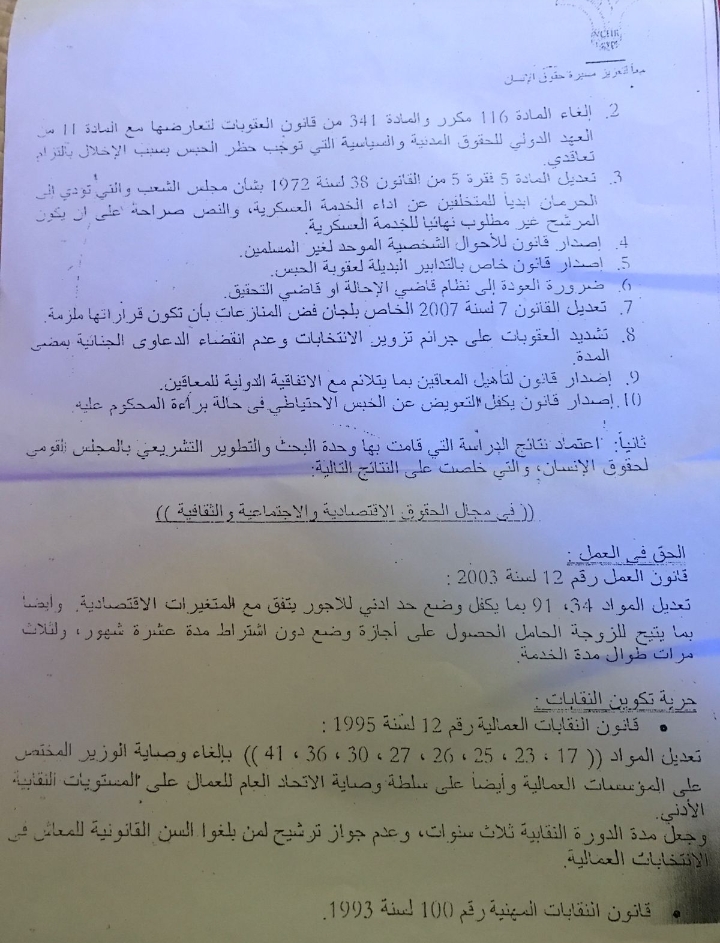 NCHR
EGYPT
معاً لتعزيز مسيرة حقوق الإنسان
2. إلغاء المادة 116 مكرر والمادة 341 من قانون العقوبات لتعارضها مع المادة 11 من
العهد الدولي للحقوق المدنية والسياسية التي توجب حظر الحبس بسبب الإخلال بالتزام
تعاقدي.
3. تعديل المادة 5 فقرة 5 من القانون 38 لسنة 1972 بشأن مجلس الشعب والتي تودي إلى
الحرمان ابدياً للمتخلفين عن اداء الخدمة العسكرية، والنص صراحة على ان يكون
المرشح غير مطلوب نهائيا للخدمة العسكرية.
4. إصدار قانون للأحوال الشخصية الموحد لغير المسلمين.
5. إصدار قانون خاص بالتدابير البديلة لعقوبة الحبس.
6. ضرورة العودة إلى نظام قاضي الإحالة او قاضي التحقيق.
7. تعديل القانون 7 لسنة 2007 الخاص بلجان فض المنازعات بأن تكون قراراتها ملزمة.
8. تشديد العقوبات على جرائم تزوير الانتخابات وعدم انقضاء الدعاوى الجنائية بمضى
المدة.
9. إصدار قانون لتأهيل المعاقين بما يتلائم مع الاتفاقية الدولية للمعاقين.
10. إصدار قانون يكفل التعويض عن الحبس الاحتياطي فى حالة براءة المحكوم عليه.
ثانياً: اعتماد نتائج الدراسة التي قامت بها وحدة البحث والتطوير التشريعي بالمجلس القومي
لحقوق الإنسان، والتي خلصت على النتائج التالية:
(( في مجال الحقوق الاقتصادية والاجتماعية والثقافية ))
الحق في العمل :
قانون العمل رقم 12 لسنة 2003 :
تعديل المواد 34، 91 بما يكفل وضع حد ادني للاجور يتفق مع المتغيرات الاقتصادية. وأيضا
بما يتيح للزوجة الحامل الحصول على أجازة وضع دون اشتراط مدة عشرة شهور، ولثلاث
مرات طوال مدة الخدمة.
حرية تكوين النقابات :
• قانون النقابات العمالية رقم 12 لسنة 1995 :
تعديل المواد (( 17 ، 23 ، 25 ، 26 ، 27 ، 30 ، 36 ، 41 )) بإلغاء وصاية الوزير المختص
على المؤسسات العمالية وأيضاً على سلطة وصاية الاتحاد العام للعمال على المستويات النقابية
الأدني.
وجعل مدة الدورة النقابية ثلاث سنوات، وعدم جواز ترشيح لمن بلغوا السن القانونية للمعاش في
الانتخابات العمالية.
• قانون النقابات المهنية رقم 100 لسنة 1993.